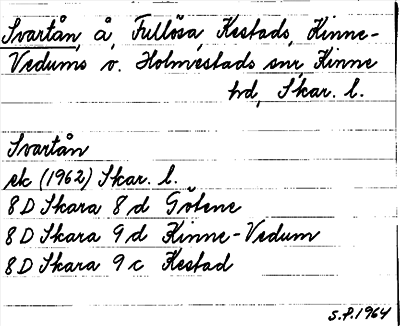 Svartån, å, Fullösa, Kestads, Kinne-
Vedums o. Holmestads snr, Kinne
hd, Skar. l.
Svartån
ek (1962) Skar. l.
8 D Skara 8 d Götene
8 D Skara 9 d Kinne-Vedum
8 D Skara 9 c Kestad
S.P. 1964